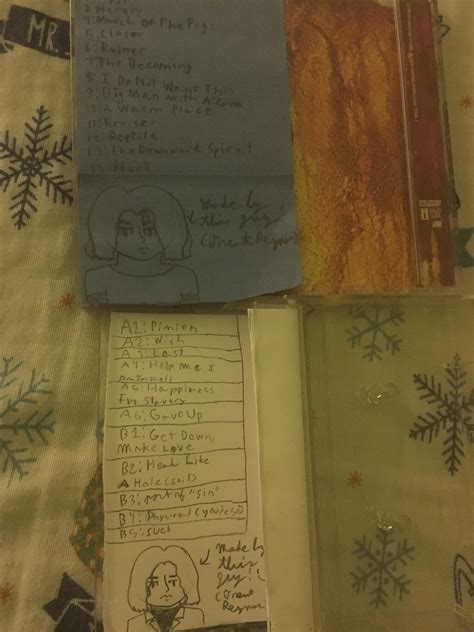 MR.
3 Heresy
4 March Of The Pigs
5. Closer
6: Ruiner
7: The Becoming
8 I Do Not Want This
9: Big Man With A Gun
10 A Warm Place
11: Eraser
12 Reptile
13: The Downward Spiral
14 Hurt
Made by
this guy!
(Trent Reznor)
A1: Pinion
A2: Wish
A3: Last
A4: Help Me I
Am In Hell
A5: Happiness
In Slavery
A6: Gave Up
B1: Get Down,
Make Love
B2: Head Like
A Hole
B3: "Sin"
B4: Physical
B5: Suck
Made by
this
guy!
(Trent
Reznor)